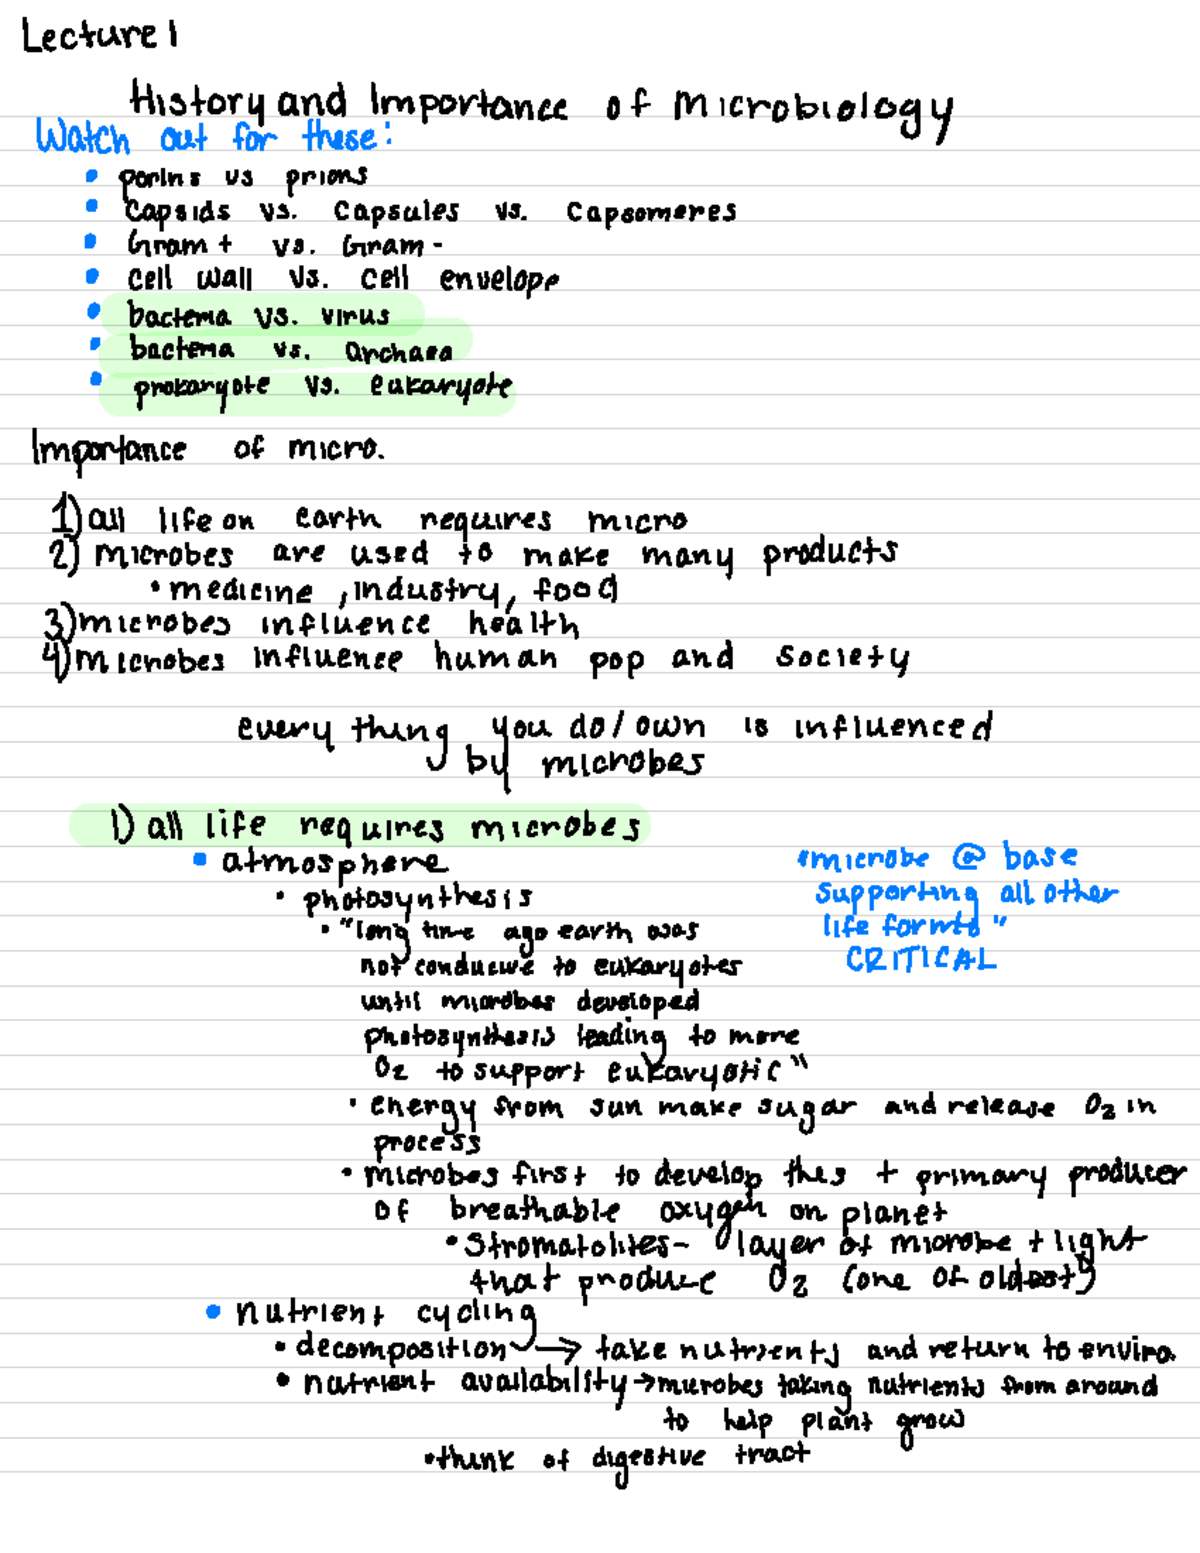 Lecture 1
History and Importance of Microbiology
Watch out for these:
• porins vs prions
• Capsids vs. Capsules vs. Capsomeres
• Gram + vs. Gram -
• cell wall vs. cell envelope
• bacteria vs. virus
• bacteria vs. archaea
• prokaryote vs. eukaryote
Importance of micro.
1) all life on earth requires micro
2) microbes are used to make many products
• medicine, industry, food
3) microbes influence health
4) microbes influence human pop and society
every thing you do/own is influenced
by microbes
1) all life requires microbes
• atmosphere
"microbe @ base
supporting all other
life forms"
CRITICAL
• photosynthesis
• "long time ago earth was
not conducive to eukaryotes
until microbes developed
photosynthesis leading to more
O₂ to support eukaryotic"
• energy from sun make sugar and release O₂ in
process
• microbes first to develop this + primary producer
of breathable oxygen on planet
• Stromatolites- layer of microbe + light
that produce O₂ (one of oldest)
• nutrient cycling
• decomposition → take nutrients and return to enviro.
• nutrient availability → microbes taking nutrients from around
to help plant grow
• think of digestive tract